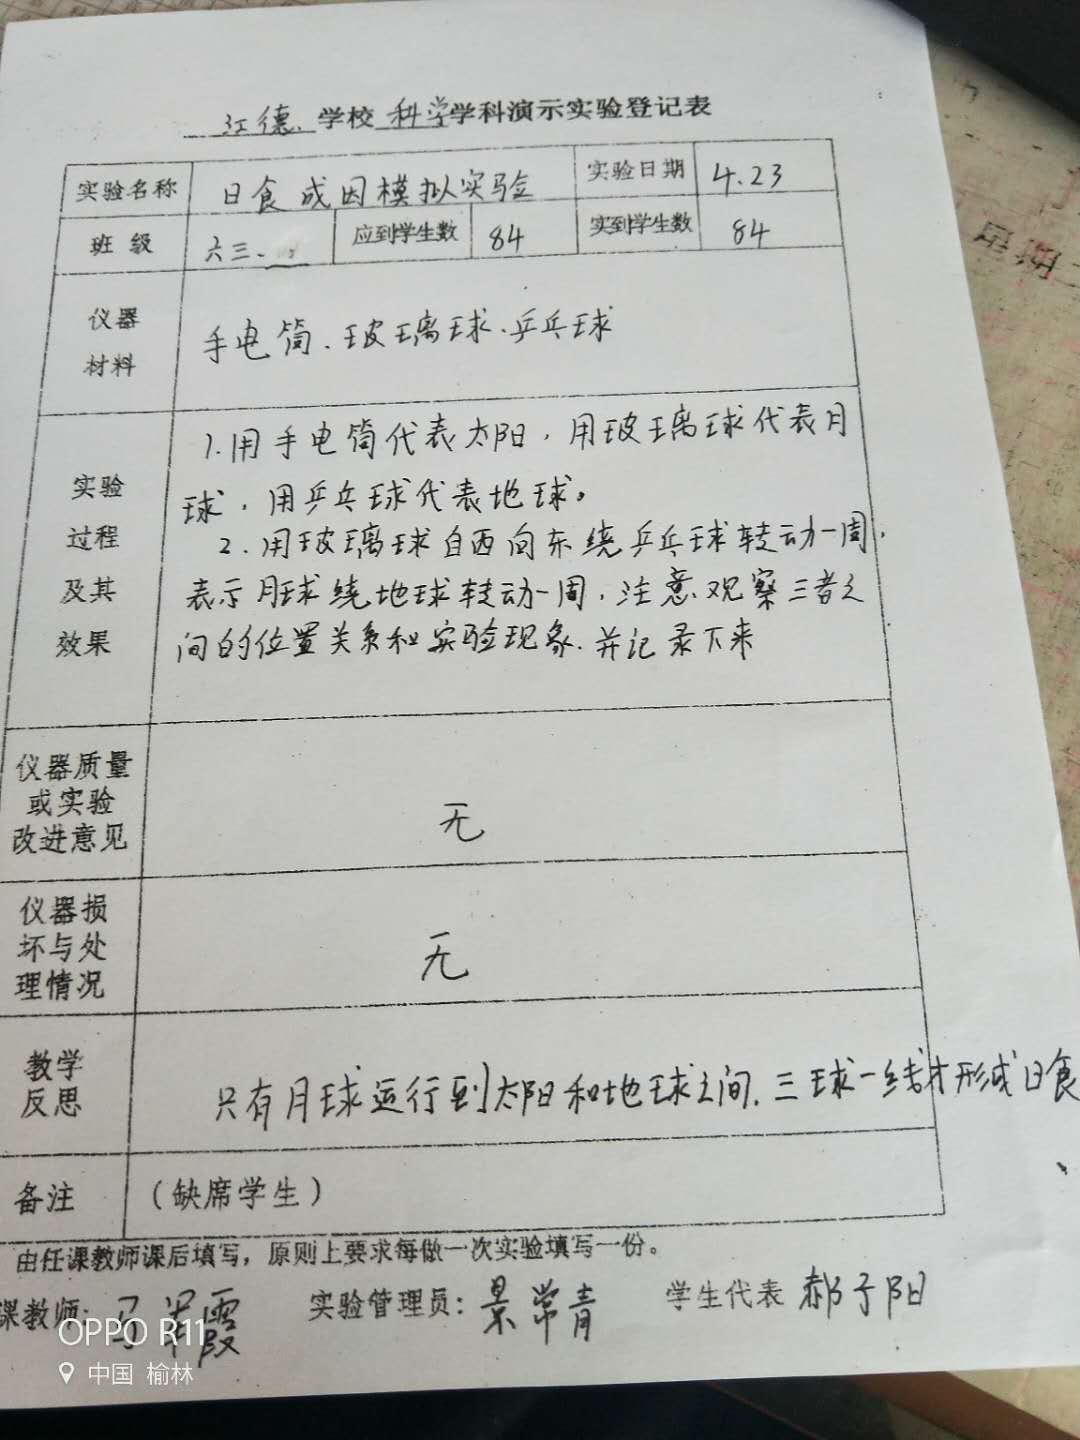 江德 学校 科学 学科演示实验登记表
实验名称 日食成因模拟实验 实验日期 4.23
班 级 六三、 应到学生数 84 实到学生数 84
仪器
材料
手电筒、玻璃球、乒乓球
实验
过程
及其
效果
1.用手电筒代表太阳，用玻璃球代表月
球，用乒乓球代表地球。
2.用玻璃球自西向东绕乒乓球转动一周，
表示月球绕地球转动一周，注意观察三者之
间的位置关系和实验现象.并记录下来
仪器质量
或实验
改进意见
无
仪器损
坏与处
理情况
无
教学
反思
只有月球运行到太阳和地球之间，三球一线才形成日食
备注 （缺席学生）
由任课教师课后填写，原则上要求每做一次实验填写一份。
课教师: 马 霞 实验管理员: 景常青 学生代表 郝子阳
OPPO R11
中国 榆林
星期